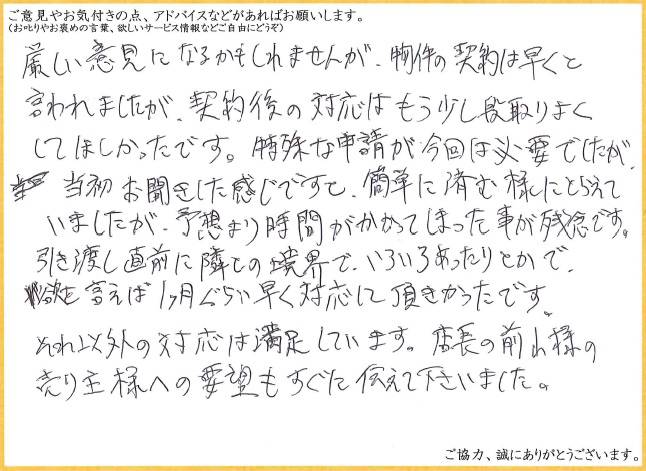 ご意見やお気付きの点、アドバイスなどがあればお願いします。
(お叱りやお褒めの言葉、欲しいサービス情報などご自由にどうぞ)
厳しい意見になるかもしれませんが、物件の契約は早くと
言われましたが、契約後の対応はもう少し段取りよく
してほしかったです。特殊な申請が今回は必要でしたが、
当初お聞きした感じですと、簡単に済む様にとらえて
いましたが、予想より時間がかかってしまった事が残念です。
引き渡し直前に隣との境界で、いろいろあったりとかで、
欲を言えば1ヶ月ぐらい早く対応して頂きかったです。
それ以外の対応は満足しています。店長の前山様の
売り主様への要望もすぐに伝えて下さいました。
ご協力、誠にありがとうございます。